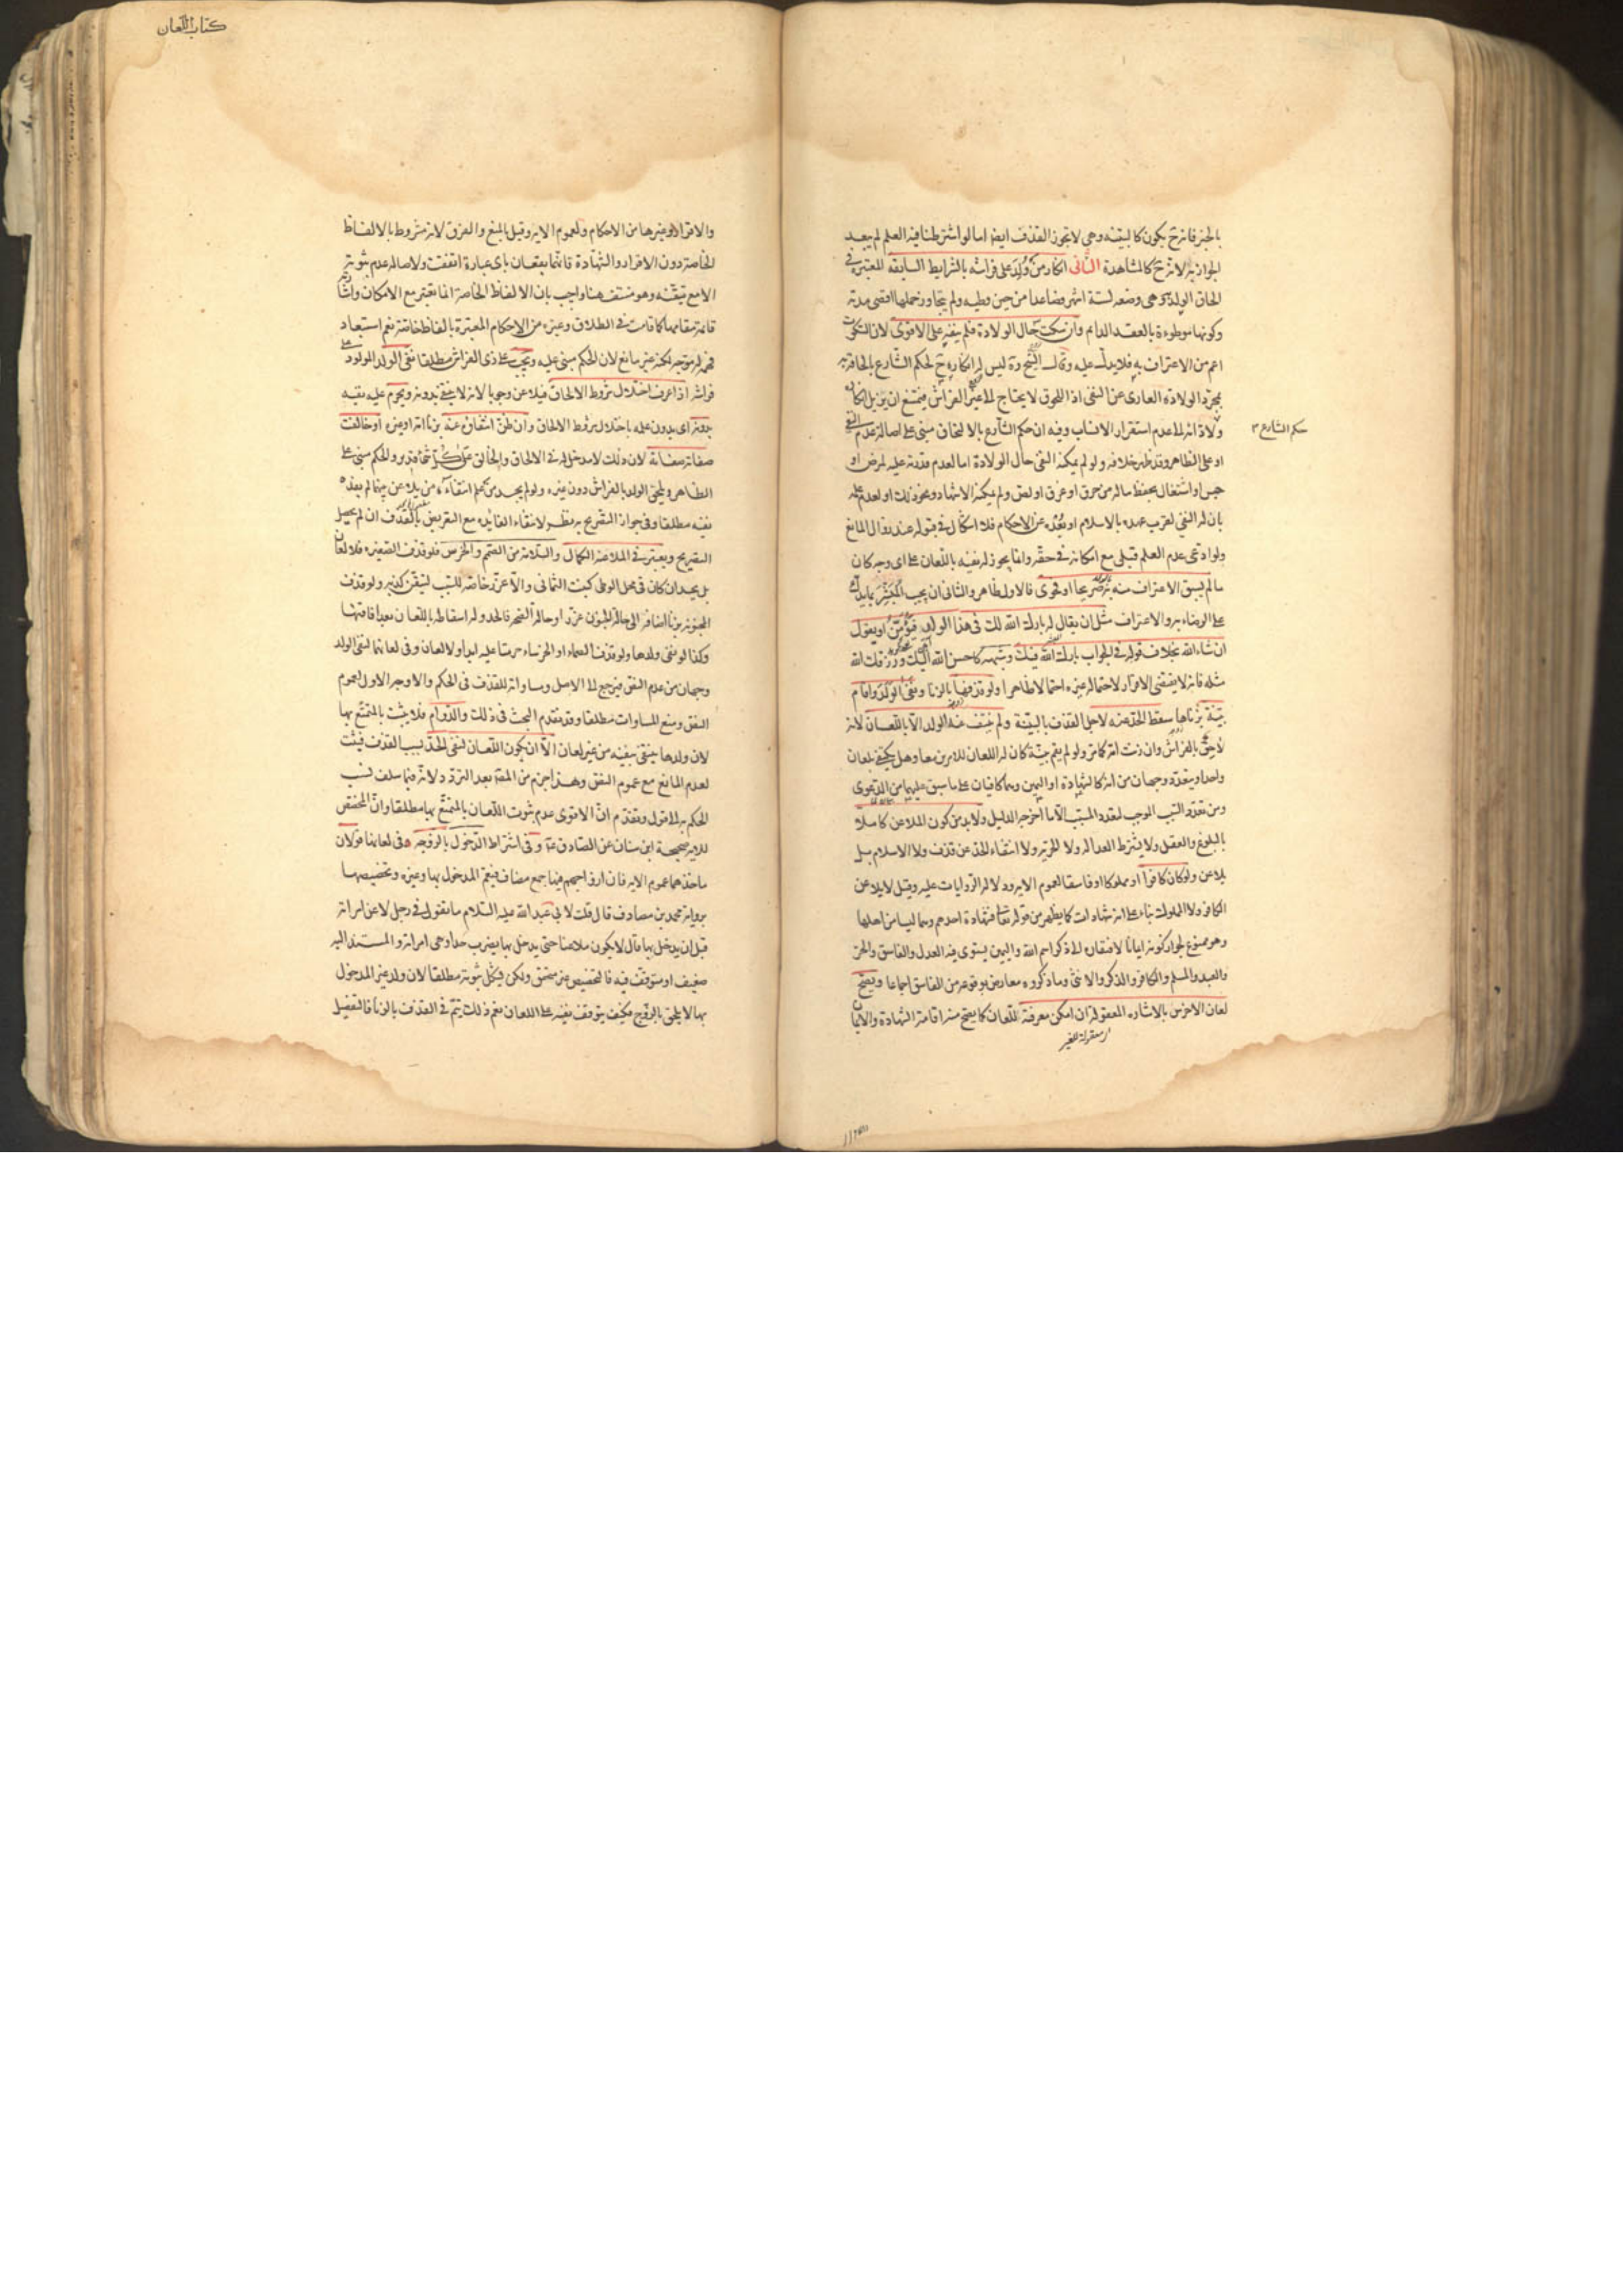 بالخبر فانه ح يكون كالبينة وهى لا تجوز القذف ايضا اما لو اشترطنا فيه العلم لم يبعد
الجواز به لانه ح كالمشاهدة الثانى انكار من ولد على فراشه بالشرايط السابقه المعتبرة فى
الحاق الولد به وهى وضعه لستة اشهر فصاعدا من حين وطيه ولم يتجاوز حملها اقصى مدته
وكونها موطوءة بالعقد الدايم وان سكت حال الولادة فلم ينفه على الاقوى لان السكوت
اعم من الاعتراف به فلا يدل عليه وقال الشيخ ره ليس له انكاره ح لحكم الشارع بالحاقه به
بمجرد الولادة العارى عن النفى اذ اللحوق لا يحتاج الى غير الفراش فيمتنع ان يزيل انكاره
حكم الشارع
ولادائه الى عدم استقرار الانساب وفيه ان حكم الشارع بالالحاق مبنى على اصالة عدم النفى
او على الظاهر وقد ظهر خلافه ولو لم يمكنه النفى حال الولادة اما لعدم قدرته عليه لمرض او
حبس او اشتغال بحفظ ماله من حرق او غرق او لص ولم يمكنه الاشهاد ونحو ذلك او لعدم علمه
بان له النفى لقرب عهده بالاسلام او بعده عن الاحكام فلا اشكال فى قبوله عند زوال المانع
ولو ادعى عدم العلم قبل مع امكانه فى حقه وانما يجوز له نفيه باللعان على اى وجه كان
ما لم يسبق الاعتراف منه به صريحا او فحوى فالاول ظاهر والثانى ان يجيب المبشر بما يدل
على الرضاء به والاعتراف مثل ان يقال له بارك الله لك فى هذا الولد فيؤمن او يقول
ان شاء الله بخلاف قوله فى الجواب بارك الله فيك وشبهه كاحسن الله اليك ورزقك الله
مثله فانه لا يقتضى الاقرار لاحتماله غيره احتمالا ظاهرا ولو قذفها بالزنا ونفى الولد واقام
بينة بزناها سقط الحد عنه لاجل القذف بالبينة ولم ينتف عنه الولد الا باللعان لانه
لاحق بالفراش وان زنت امه كما مر ولو لم يقم بينة كان له اللعان للامرين معا وهل يكفى لعان
واحد او يتعدد وجهان من انه كالشهادة او اليمين وهما كافيان على ما سبق عليهما من الدعوى
ومن تعدد السبب الموجب لتعدد المسبب الا ما اخرجه الدليل ولا بد من كون الملاعن كاملا
بالبلوغ والعقل ولا يشترط العدالة ولا الحرية ولا انتفاء الحد عن قذف ولا الاسلام بل
يلاعن ولو كان كافرا او مملوكا او فاسقا لعموم الايه ودلالة الروايات عليه وقيل لا يلاعن
الكافر ولا المملوك بناء على انه شهادات كما يظهر من قوله تعالى فشهادة احدهم وهما ليسا من اهلها
وهو ممنوع لجواز كونه ايمانا لافتقاره الى ذكر اسم الله واليمين يستوى فيه العدل والفاسق والحر
والعبد والمسلم والكافر والذكر والانثى وما ذكروه معارض بوقوعه من الفاسق اجماعا ويصح
لعان الاخرس بالاشارة المعقولة ان امكن معرفته اللعان كما يصح منه اقامة الشهادة والايمان
كتاب اللعان
والاقرار وغيرها من الاحكام ولعموم الايه وقيل بالمنع والفرق لانه مشروط بالالفاظ
الخاصة دون الاقرار والشهادة فانهما يقعان باى عبارة اتفقت ولاصالة عدم ثبوته
الا مع تيقنه وهو منتف هنا واجيب بان الالفاظ الخاصة انما تعتبر مع الامكان واشارته
قائمة مقامها كما قامت فى الطلاق وغيره من الاحكام المعتبرة بالفاظ خاصة نعم استبعاد
فهمه له موجه لكنه غير مانع لان الحكم مبنى عليه ويجب على ذى الفراش مطلقا نفى الولد المولود على
فراشه اذا عرف اختلال شروط الالحاق فيلاعن وجوبا لانه لا ينتفى بدونه ويحرم عليه نفيه
بدونه اى بدون علمه باختلال شروط الالحاق وان ظن انتفائه عنه بزنا امه او غيره او خالفت
صفاته صفاته لان ذلك لا مدخل له فى الالحاق والخالق على كل شىء قدير والحكم مبنى على
الظاهر ويلحق الولد بالفراش دون غيره ولو لم يجد من علم انتفاءه من يلاعن بينهما لم يفده
نفيه مطلقا وفى جواز التصريح به نظر لانتفاء الفايدة مع التعريض بالقذف ان لم يحصل
التصريح ويعتبر فى الملاعنة الكمال والسلامة من الصمم والخرس فلو قذف الصغيرة فلا لعان
بل يحد ان كان فى محل الوطى كبنت الثمانى والا عزر خاصة للسب لتيقن كذبه ولو قذف
المجنونة بزنا اضافه الى حالة الجنون عزر او حالة الصحة فالحد وله اسقاطه باللعان بعد افاقتها
وكذا لو نفى ولدها ولو قذف الصماء او الخرساء حرمتا عليه ابدا ولا لعان وفى لعانهما لنفى الولد
وجهان من عدم النص فيرجع الى الاصل ومساواته للقذف فى الحكم والاوجه الاول لعموم
النص ومنع المساوات مطلقا وقد تقدم البحث فى ذلك والدوام فلا يثبت بالمتمتع بها
لان ولدها ينتفى بنفيه من غير لعان الا ان يكون اللعان لنفى الحد بسبب القذف فيثبت
لعدم المانع مع عموم النص وهذا جزم من المص بعد التردد لانه فيما سلف نسب
الحكم به الى قول وتقدم ان الاقوى عدم ثبوت اللعان بالمتمتع بها مطلقا وان المخصص
للايه صحيحة ابن سنان عن الصادق ع وفى اشتراط الدخول بالزوجه فى لعانها قولان
ماخذهما عموم الايه فان ازواجهم فيها جمع مضاف فيعم المدخول بها وغيره وتخصيصها
برواية محمد بن مصادف قال قلت لابى عبد الله عليه السلام ما تقول فى رجل لاعن امراته
قبل ان يدخل بها قال لا يكون ملاعنا حتى يدخل بها يضرب حدا وهى امراته والمستند اليه
ضعيف او متوقف فيه فالتخصيص غير متحقق ولكن يشكل ثبوته مطلقا لان ولد غير المدخول
بها لا يلحق بالزوج فكيف يتوقف نفيه على اللعان نعم ذلك يتم فى القذف بالزنا فالتفصيل